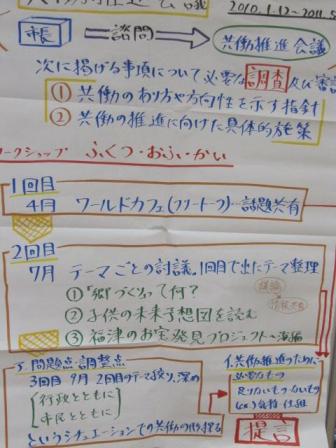 共働推進会議
2010.1.12~2011.5
市長 → 諮問 → 共働推進会議
次に掲げる事項について必要な調査及び審議
① 共働のあり方や方向性を示す指針
② 共働の推進に向けた具体的施策
ワークショップ ふくつ・おふ・かい
1回目
4月 ワールドカフェ(フリートーク)…話題共有
2回目
7月 テーマごとの討議。1回目で出たテーマ整理
①「郷づくり」って何?
②子供の未来予想図を読む
③福津のお宝発見プロジェクト
問題点・調整点
3回目 9月 2回目のテーマ絞り、深め
行政とともに
市民とともに
というシチュエーションでの共働の
共働推進のために
必要なもの
足りないもの
提言